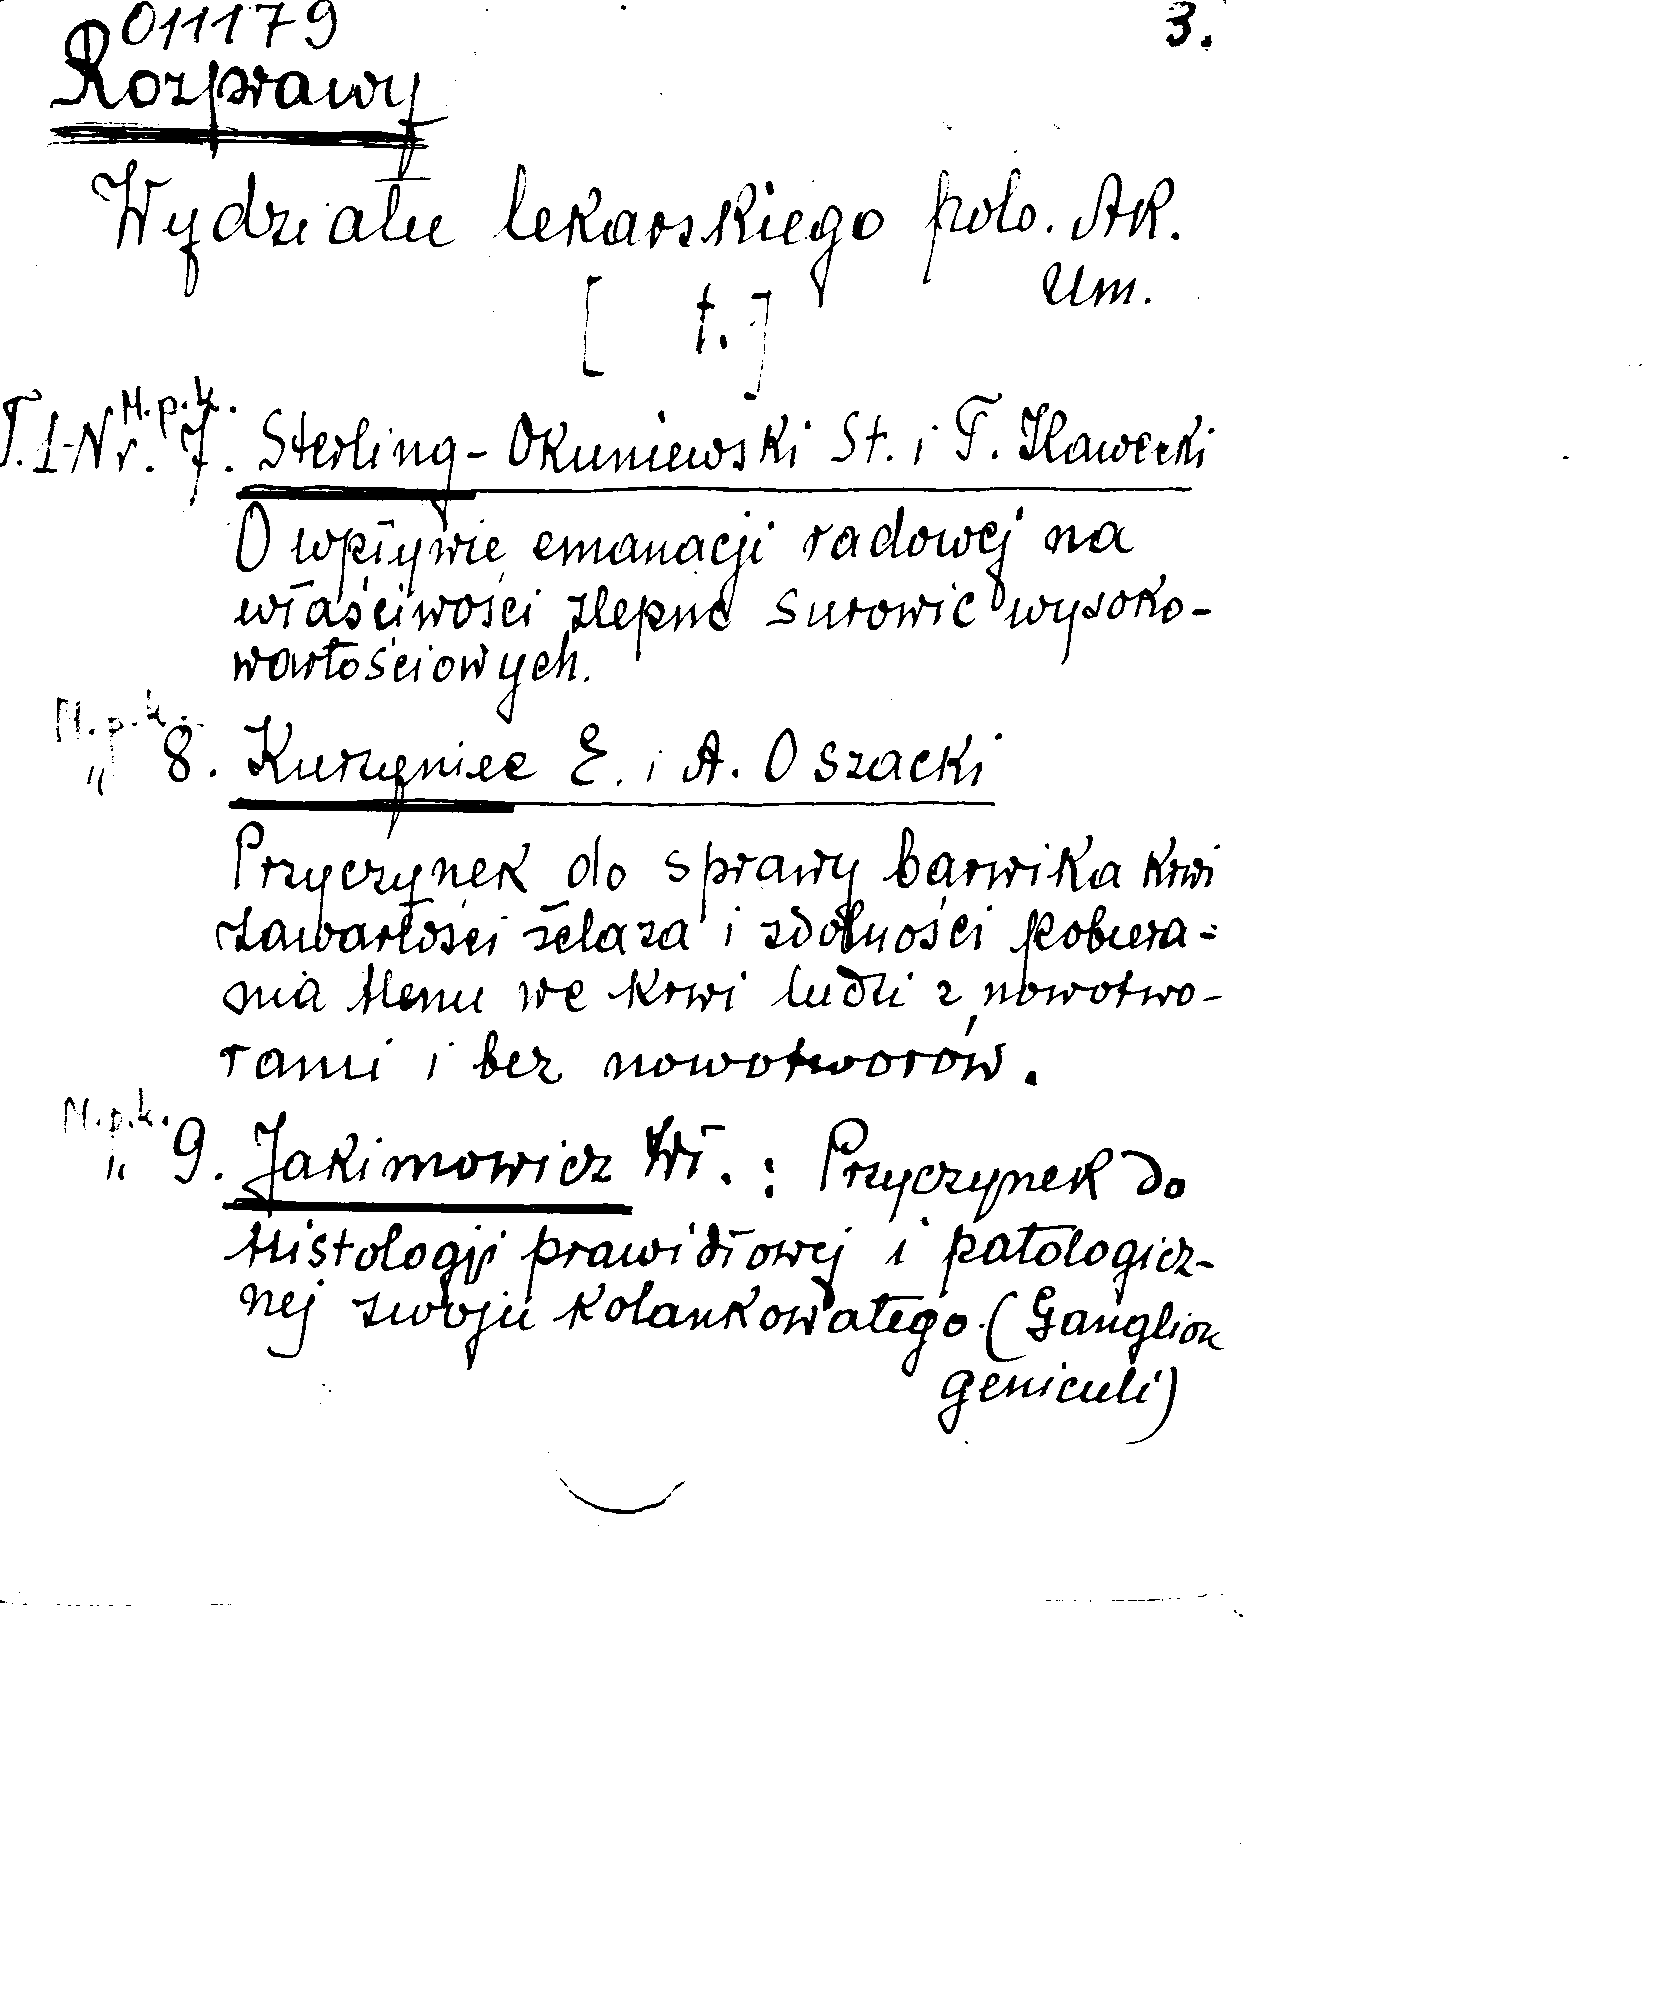 011179 3.
Rozprawy
Wydziału lekarskiego pols. Ak.
Um.
[ t.]
N.p.k.
T.1-Nr. 7. Sterling-Okuniewski St. i F. Iławecki
O wpływie emanacji radowej na
właściwości zlepne surowic wysoko-
wartościowych.
N.p.k.
„ 8. Kurzyniec E. i A. Oszacki
Przyczynek do sprawy barwika krwi
zawartości żelaza i zdolności pobiera-
nia tlenu we krwi ludzi z nowotwo-
rami i bez nowotworów.
N.p.k.
„ 9. Jakimowicz Wł. : Przyczynek do
histologji prawidłowej i patologicz-
nej zwoju kolankowatego (Ganglion
geniculi)